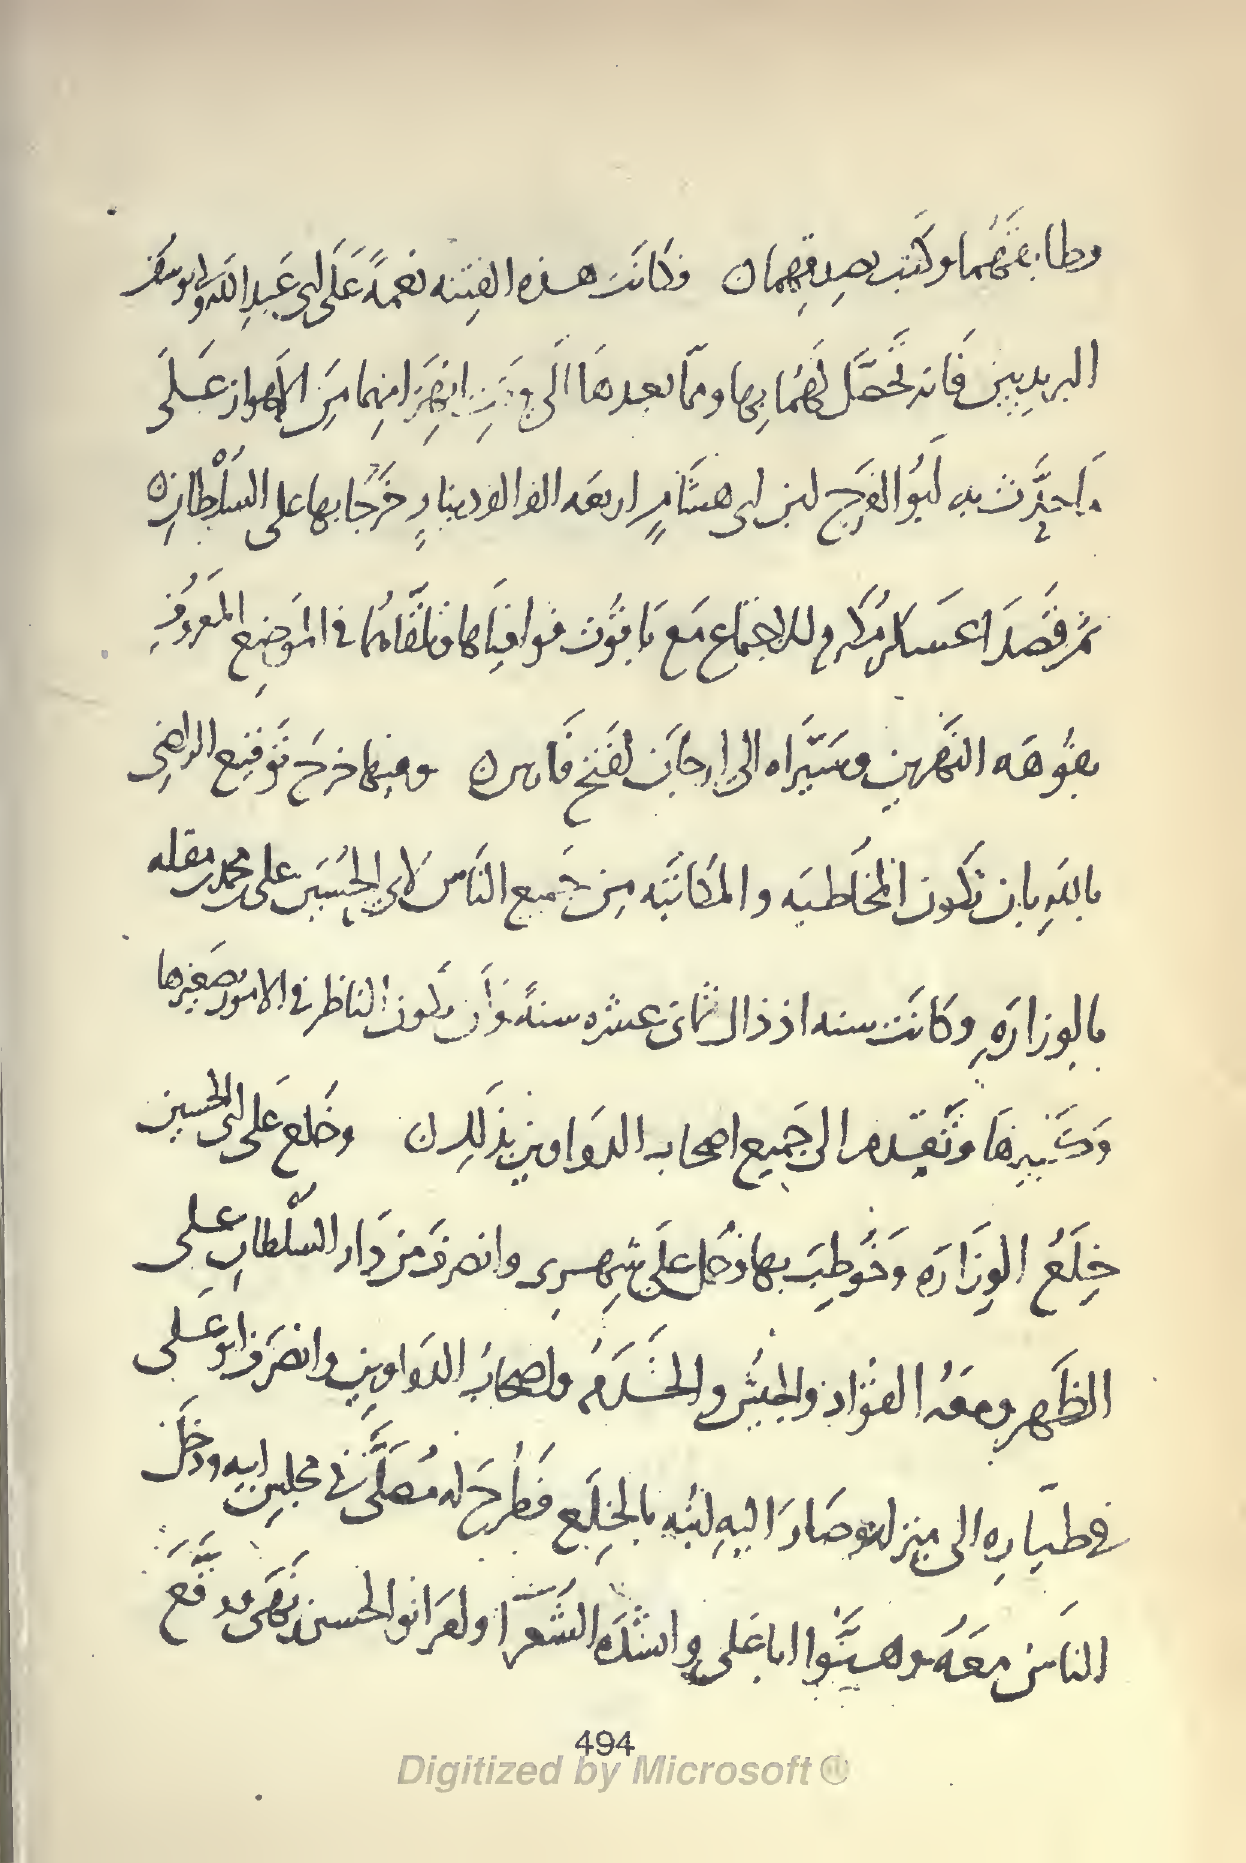 وطابقهما وكتب بصدقهما ن وكانت هذه الفتنه نعمةً على ابى عبد الله وابى يوسف
البريديين فانه تحصّل لهما بها وممّا بعدها الى وقت انهزامهما من الاهواز على
ما حدّث به ابو الفرج ابن ابى هشام اربعه الف الف دينارٍ خرجا بها على السلطان ن
ثم قصدا عسكر مكرم للاجتماع مع ياقوت فوافياها وتلقّاهما فى الموضع المعروف
بفوهه النهرين وسيّراه الى ارجان لفتح فارس ن وفيها خرج توقيع الراضى
بالله بان تكون المخاطبه والمكاتبه من جميع الناس لابى الحسين على بن محمد بن مقله
بالوزاره وكانت سنه اذ ذاك ثمانى عشره سنةً وأن يكون الناظر فى الامور صغيرها
وكبيرها وتقدم الى جميع اصحاب الدواوين بذلك ن وخلع على ابى الحسين
خلع الوزاره وخوطب بها وحمل على شهرى وانصرف من دار السلطان على
الظهر ومعه القواد والجيش والخدم واصحاب الدواوين وانصرف ابو على
فى طيّاره الى منزله وصار اليه ابنه بالخلع فطرح له مصلّى فى مجلس ابيه ودخل
الناس معه وهنّوا ابا على وانشده الشعرا ولعر ابو الحسن
494
Digitized by Microsoft ®